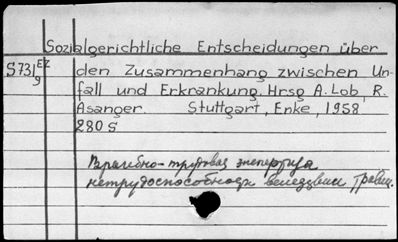 Sozialgerichtliche Entscheidungen über
S731 EZ
9
den Zusammenhang zwischen Un-
fall und Erkrankung. Hrsg A. Lob, R.
Asanger. Stuttgart, Enke, 1958
280 S
Врачебно-трудовая экспертиза
нетрудоспособности вследствии травм.